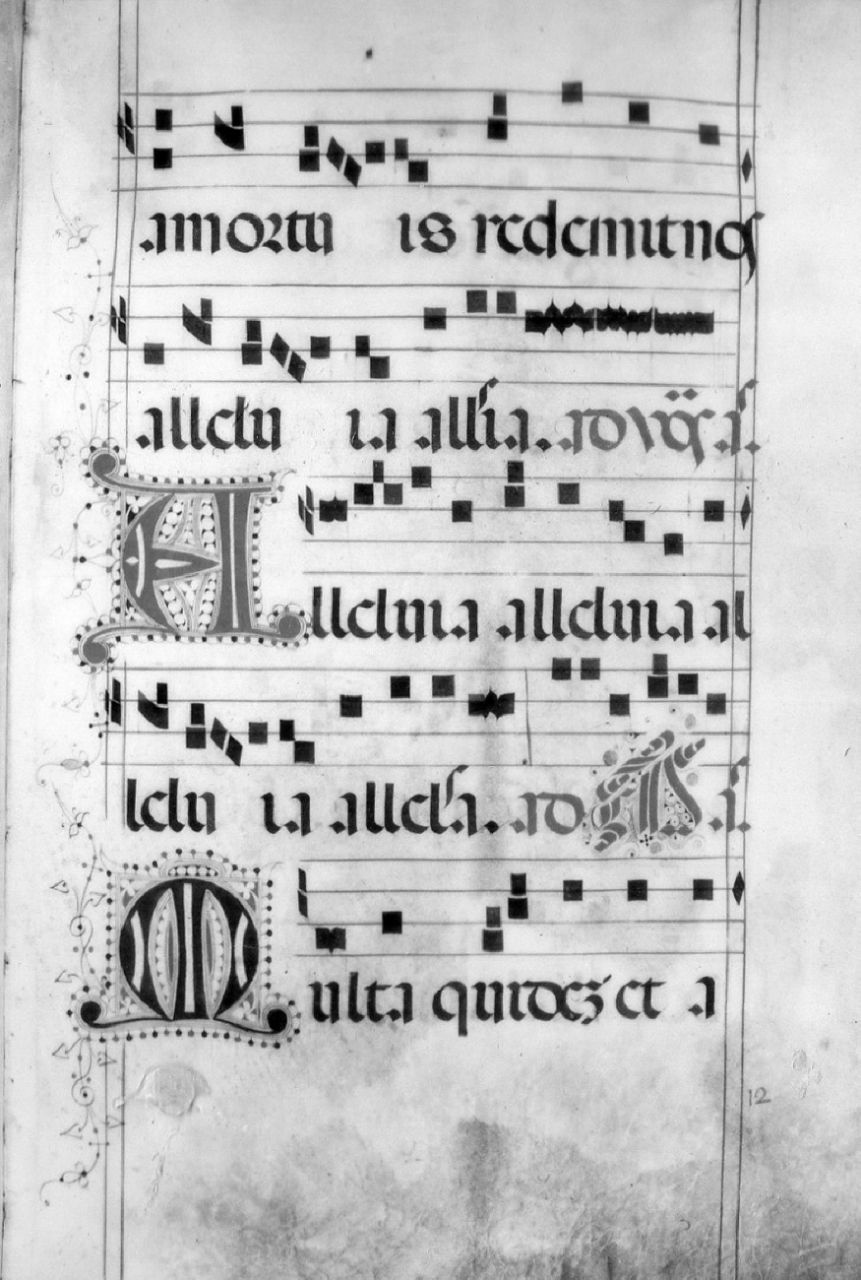 a mortu is redemit nos
alleludu ia all'ia. ad vesp̄s a.
Alleluia alleluia al
lelu ia allel'a. ad a.
Multa quidez et a
12